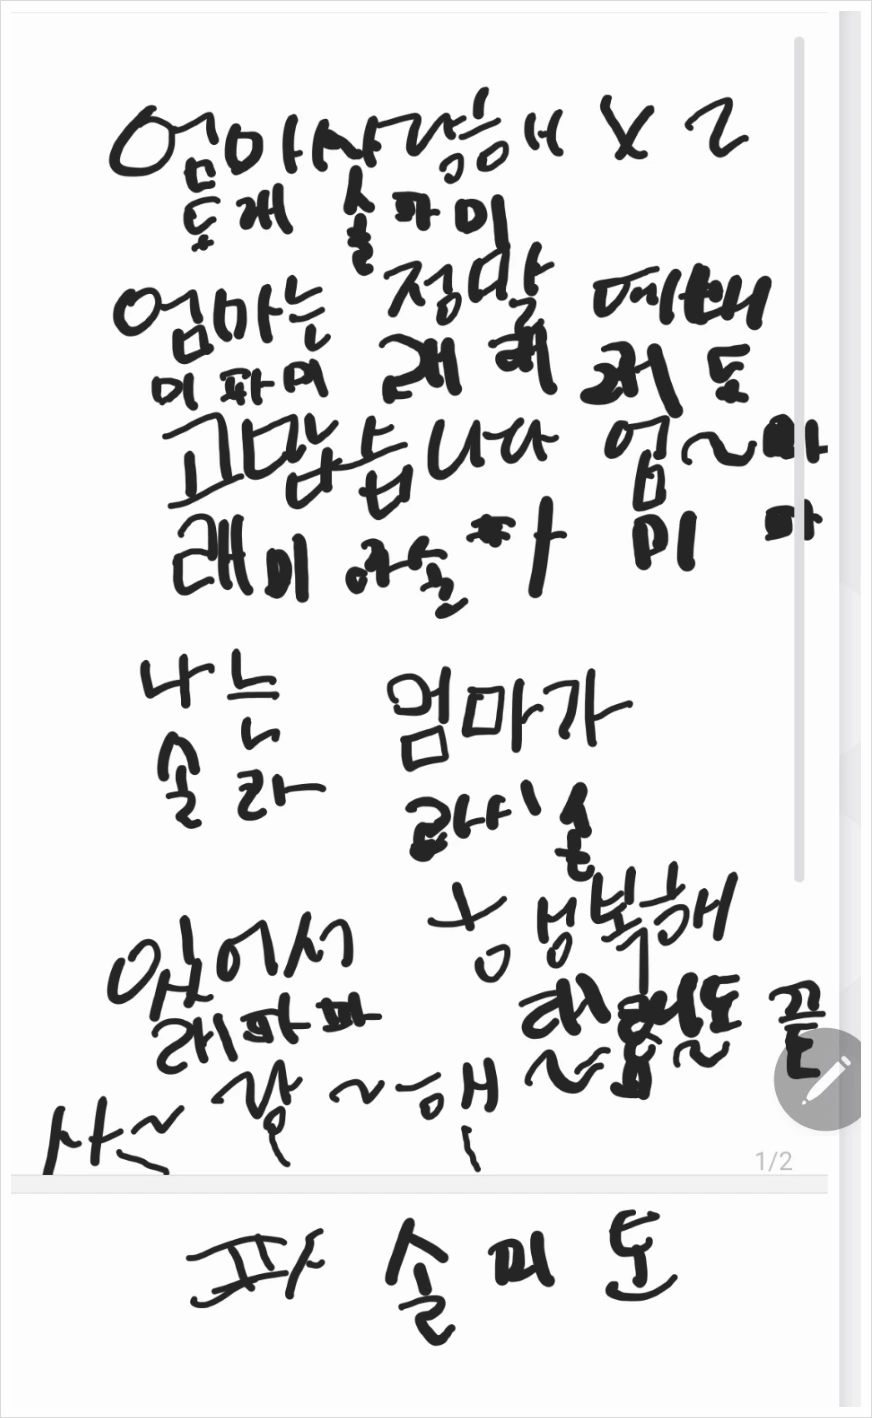 엄마사랑해 X 2
도레 솔파미
엄마는 정말 예뻐
미파미 레레 도
고맙습니다 엄~마
레미 파솔파 미 파
나는 엄마가
솔라 라시솔
있어서 행복해
레파파 도 끝
사~랑~해~
1/2
파 솔 미 도